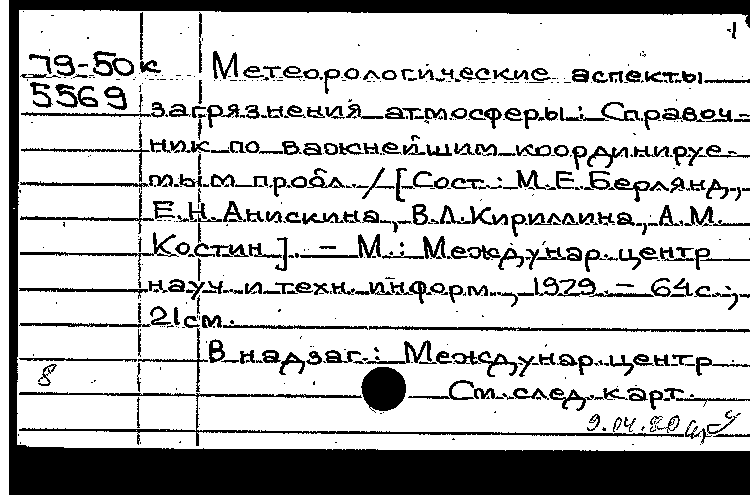 1
79-50к Метеорологические аспекты
5569 загрязнения атмосферы: Справоч-
ник по важнейшим координируе-
мым пробл. / [Сост.: М.Е.Берлянд,
Е.Н.Анискина, В.Л.Кириллина, А.М.
Костин]. - М.: Междунар. центр
науч. и техн. информ., 1979. - 64с.;
21см.
В надзаг.: Междунар. центр
8 См. след. карт.
9.04.80